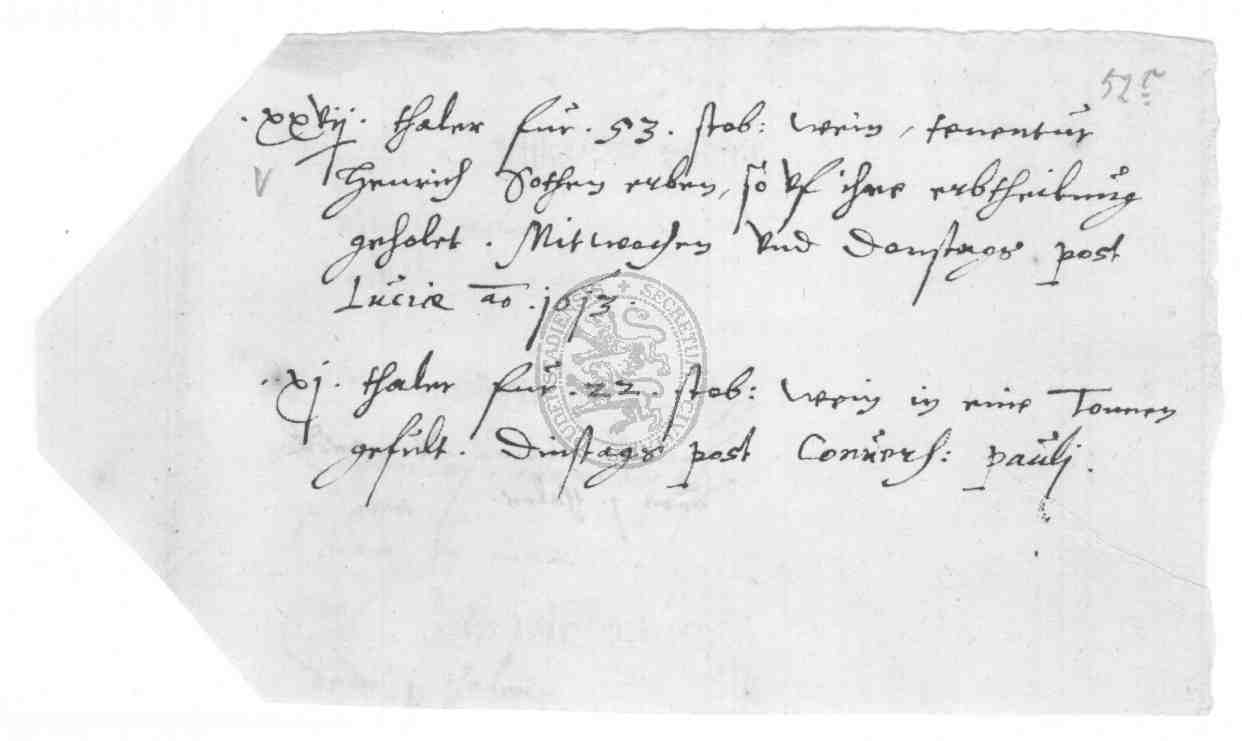 52r
.xxvij. thaler für .53. stob: wein, tenentur
Henrich Sothen erben, so vf ihre erbtheilung
geholet. Mitwochen vnd Donstags post
Luciæ ao .1613.
.xj. thaler für .22. stob: wein in eine Tonnen
gefült. Dinstags post Conuers: paulj.
SECRETUM CIVI